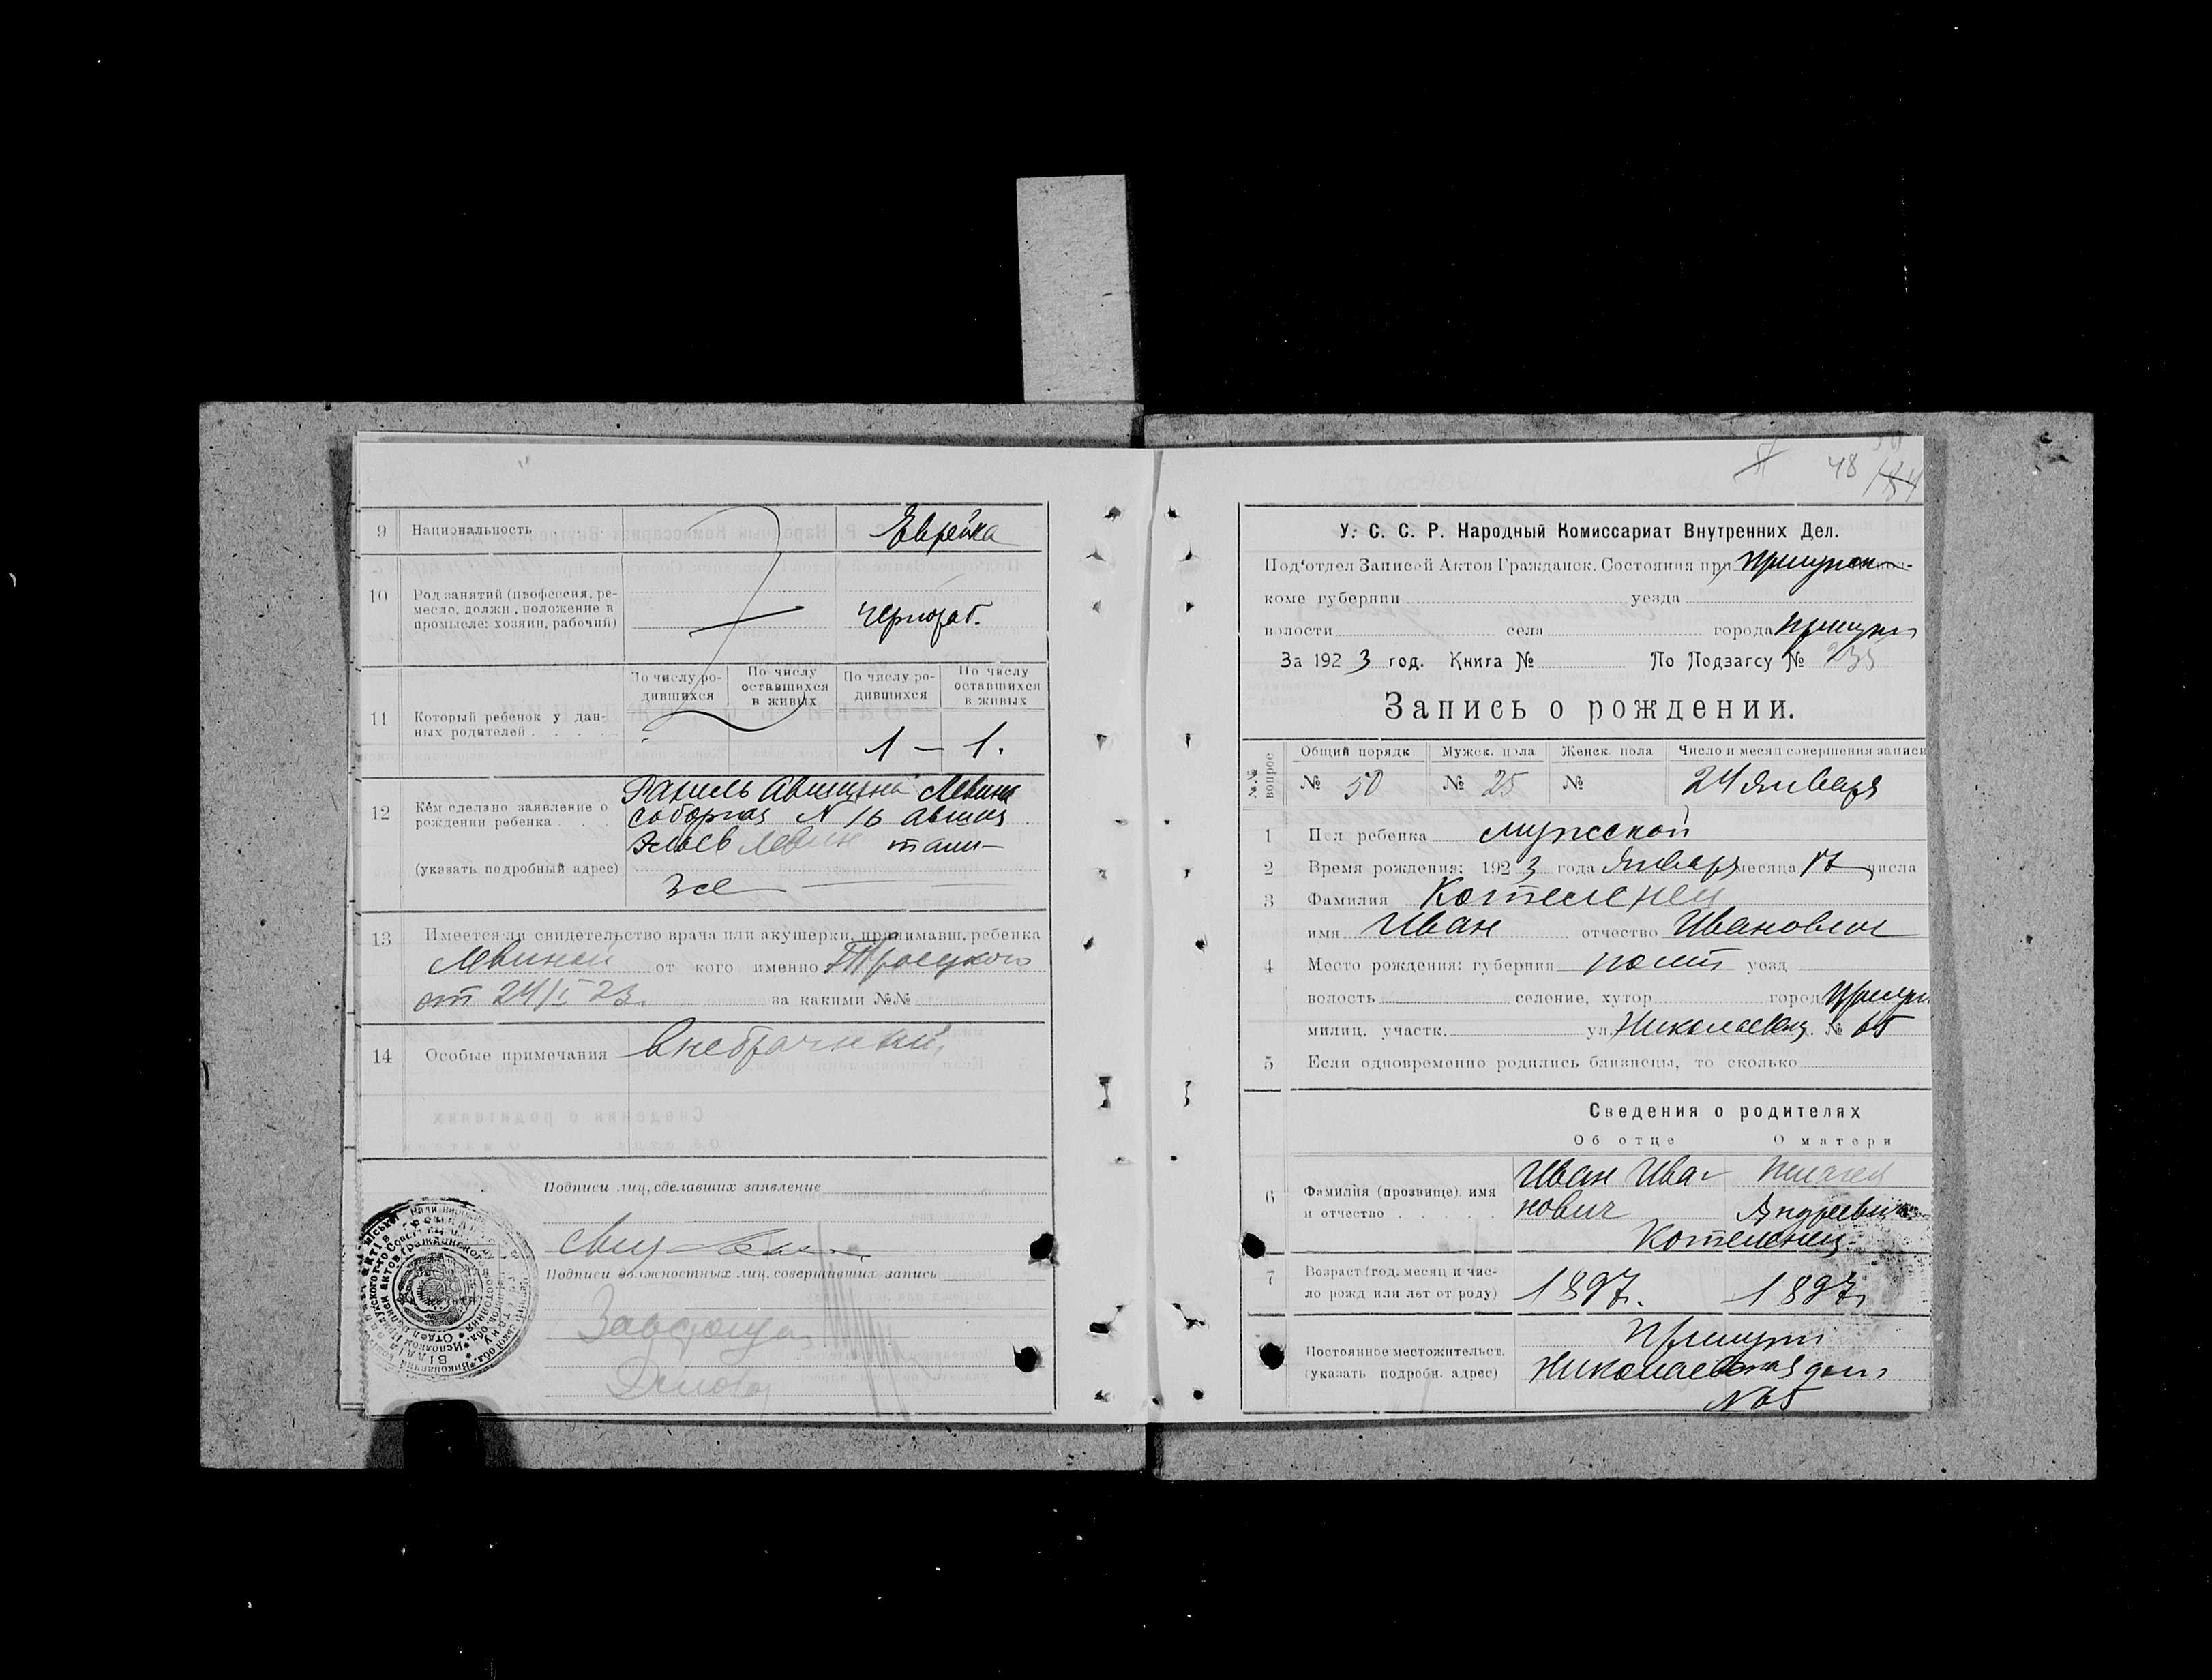 9 Национальность Еврейка
10 Род занятий (профессия, ре-
месло, должн., положение в
промысле: хозяин, рабочий) Чернораб.
По числу ро-
дившихся
По числу
оставшихся
в живых
По числу ро-
дившихся
По числу
оставшихся
в живых
11 Который ребенок у дан-
ных родителей 1 — 1.
12 Кем сделано заявление о
рождении ребенка
(указать подробный адрес)
Рахиль Левина
Соборная N 16
Левин там
же
13 Имеется-ли свидетельство врача или акушерки, принимавш. ребенка
от кого именно
от 24/I 23. за какими №№
14 Особые примечания Внебрачный
Подписи лиц, сделавших заявление
Подписи должностных лиц, совершивших запись
48
У. С. С. Р. Народный Комиссариат Внутренних Дел.
Под'отдел Записей Актов Гражданск. Состояния при
коме губернии уезда
волости села города Прилуки
За 1923 год. Книга № По Подзагсу № 235
Запись о рождении.
№№ вопрос.
Общий порядк. Мужск. пола Женск. пола Число и месяц совершения записи
№ 50 № 25 № 24 Января
1 Пол ребенка мужской
2 Время рождения: 1923 года Января месяца 17 числа
3 Фамилия Котеленец
имя Иван отчество Иванович
4 Место рождения: губерния Полт уезд
волость селение, хутор город
милиц. участк. ул. Николаевск. № 65
5 Если одновременно родились близнецы, то сколько
Сведения о родителях
Об отце О матери
6 Фамилия (прозвище), имя
и отчество
Иван Ива-
нович
Котеленец
7 Возраст (год, месяц и чис-
ло рожд. или лет от роду) 1897г. 1897г.
Постоянное местожительст.
(указать подробн. адрес)
Прилуки
Николаевская дом
N 65